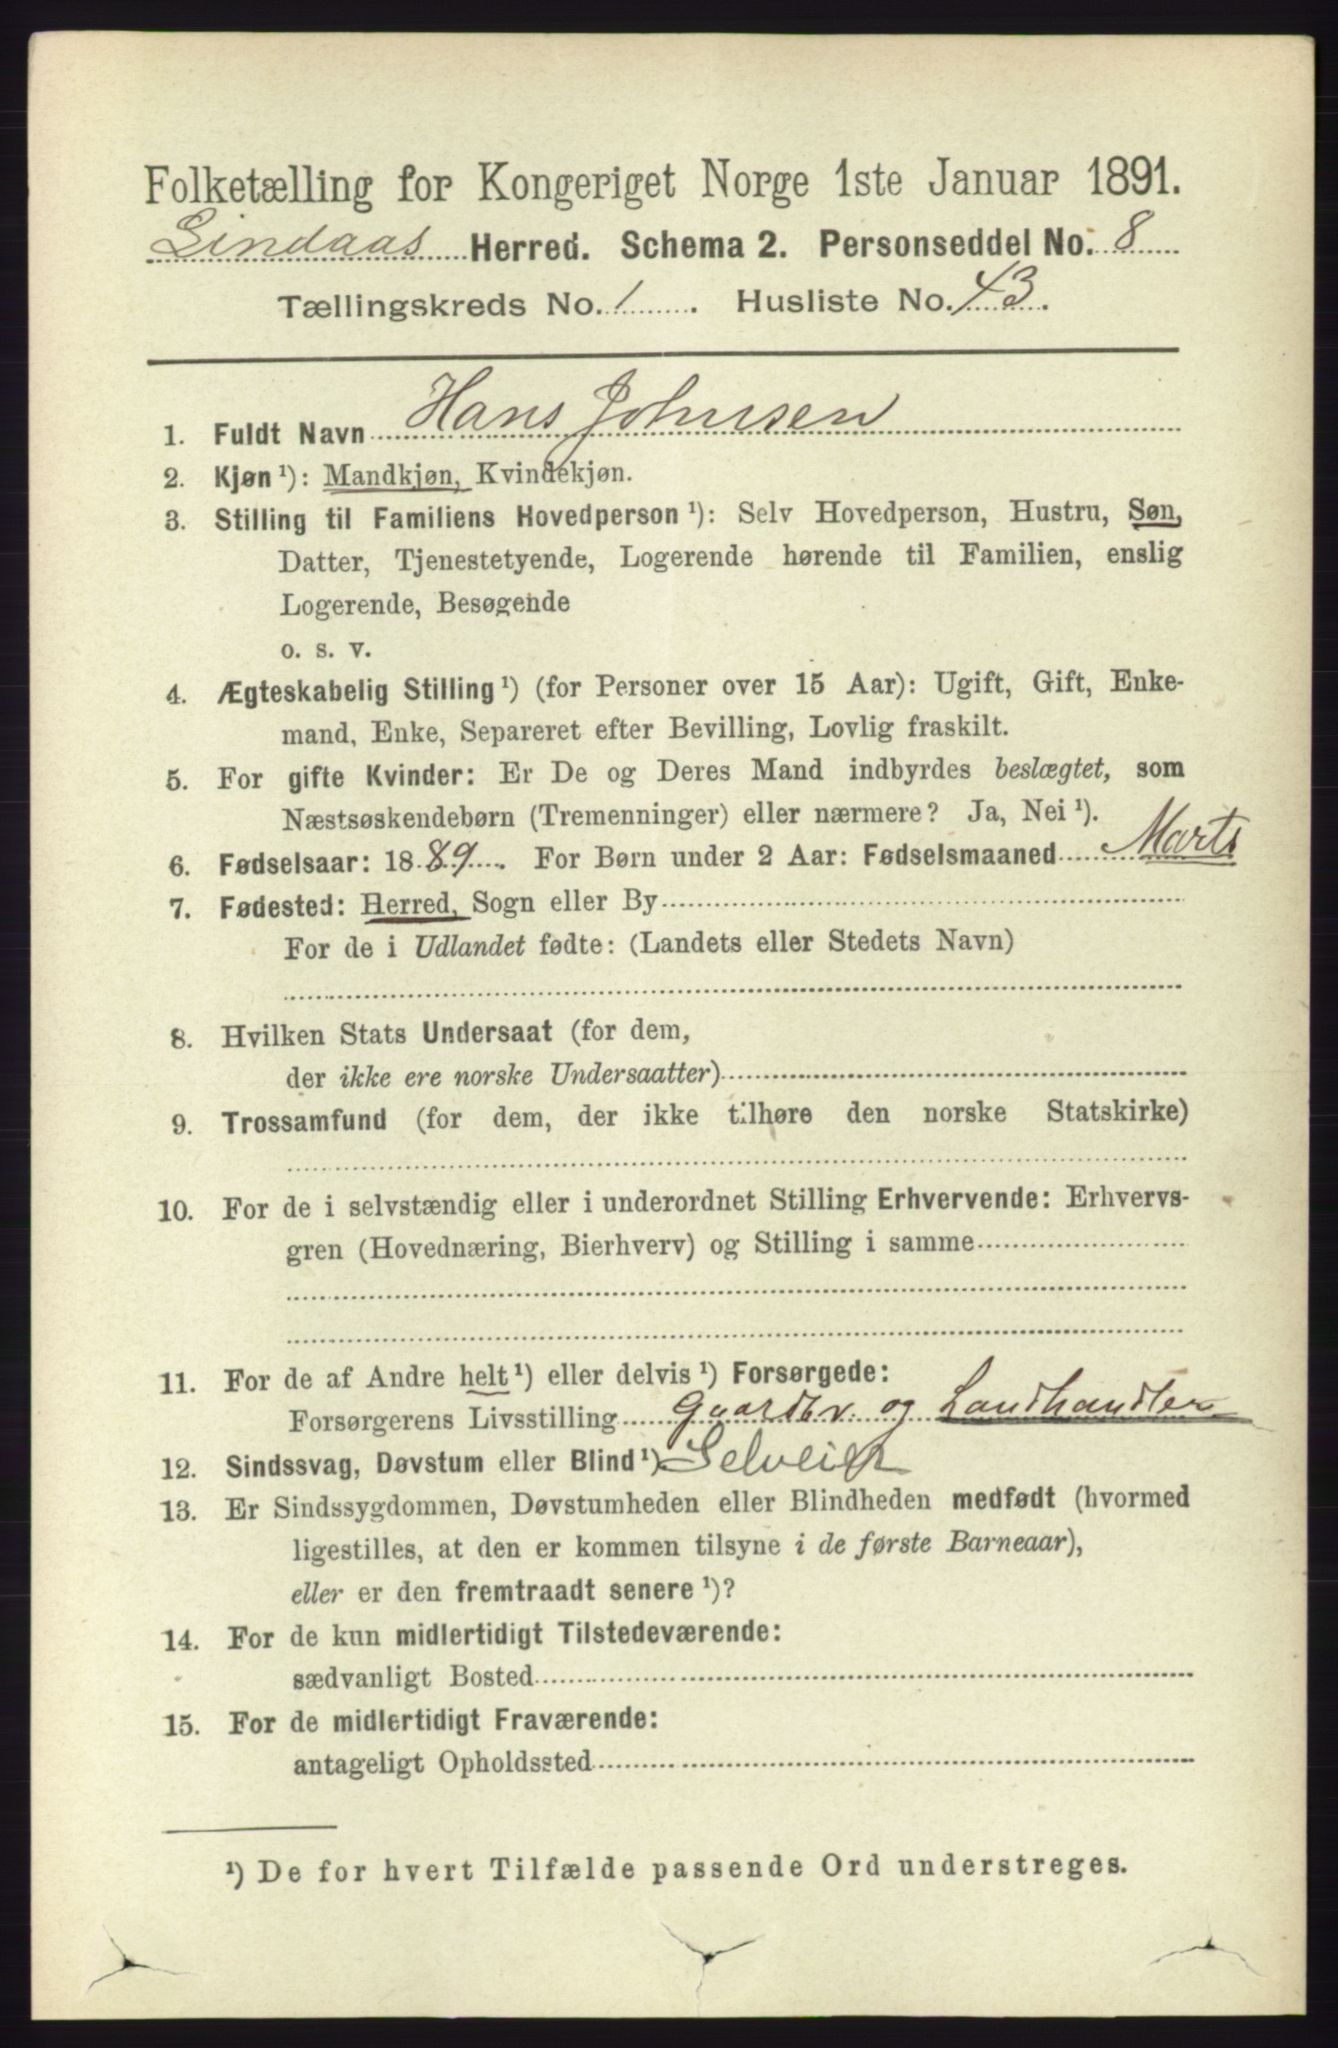 Folketælling for Kongeriget Norge 1ste Januar 1891.
Lindaas Herred. Schema 2. Personseddel No. 8
Tællingskreds No. 1. Husliste No. 43.
1. Fuldt Navn Hans Johnsen
2. Kjøn ¹): Mandkjøn, Kvindekjøn.
3. Stilling til Familiens Hovedperson ¹): Selv Hovedperson, Hustru, Søn,
Datter, Tjenestetyende, Logerende hørende til Familien, enslig
Logerende, Besøgende
o. s. v.
4. Ægteskabelig Stilling ¹) (for Personer over 15 Aar): Ugift, Gift, Enke-
mand, Enke, Separeret efter Bevilling, Lovlig fraskilt.
5. For gifte Kvinder: Er De og Deres Mand indbyrdes beslægtet, som
Næstsøskendebørn (Tremenninger) eller nærmere? Ja, Nei ¹).
6. Fødselsaar: 1889. For Børn under 2 Aar: Fødselsmaaned Marts
7. Fødested: Herred, Sogn eller By
For de i Udlandet fødte: (Landets eller Stedets Navn)
8. Hvilken Stats Undersaat (for dem,
der ikke ere norske Undersaatter)
9. Trossamfund (for dem, der ikke tilhøre den norske Statskirke)
10. For de i selvstændig eller i underordnet Stilling Erhvervende: Erhvervs-
gren (Hovednæring, Bierhverv) og Stilling i samme
11. For de af Andre helt ¹) eller delvis ¹) Forsørgede:
Forsørgerens Livsstilling Gaardbr. og Landhandler
12. Sindssvag, Døvstum eller Blind ¹) Selveier
13. Er Sindssygdommen, Døvstumheden eller Blindheden medfødt (hvormed
ligestilles, at den er kommen tilsyne i de første Barneaar),
eller er den fremtraadt senere ¹)?
14. For de kun midlertidigt Tilstedeværende:
sædvanligt Bosted
15. For de midlertidigt Fraværende:
antageligt Opholdssted
¹) De for hvert Tilfælde passende Ord understreges.